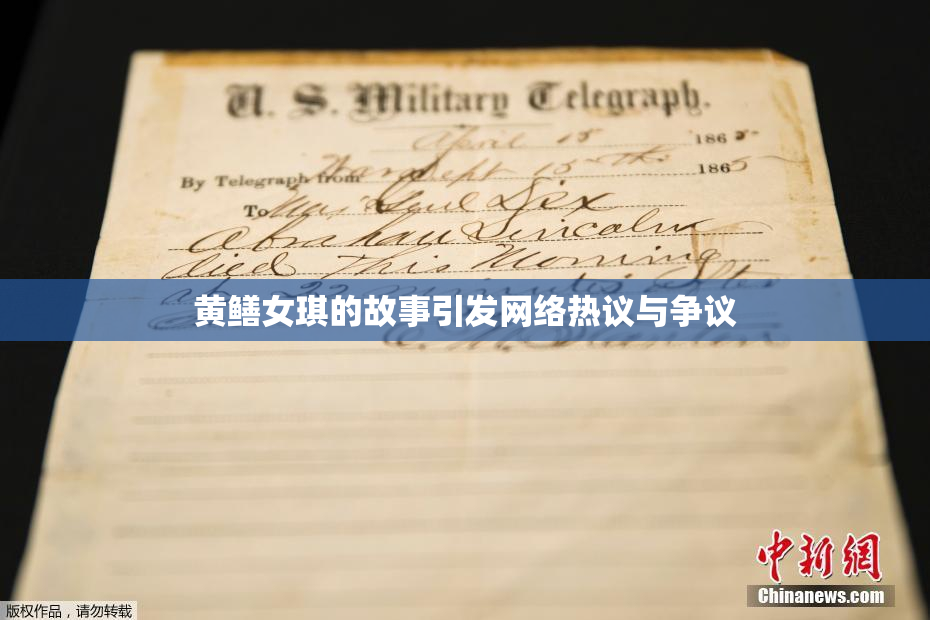 U. S. Military Telegraph.
April 15 1865
By Telegraph from War Dept 15th 1865
To Maj Genl Dix
Abraham Lincoln
died This Morning
at 22 minutes after
黄鳝女琪的故事引发网络热议与争议
E. M. Stanton
中新網
Chinanews.com
版权作品，请勿转载